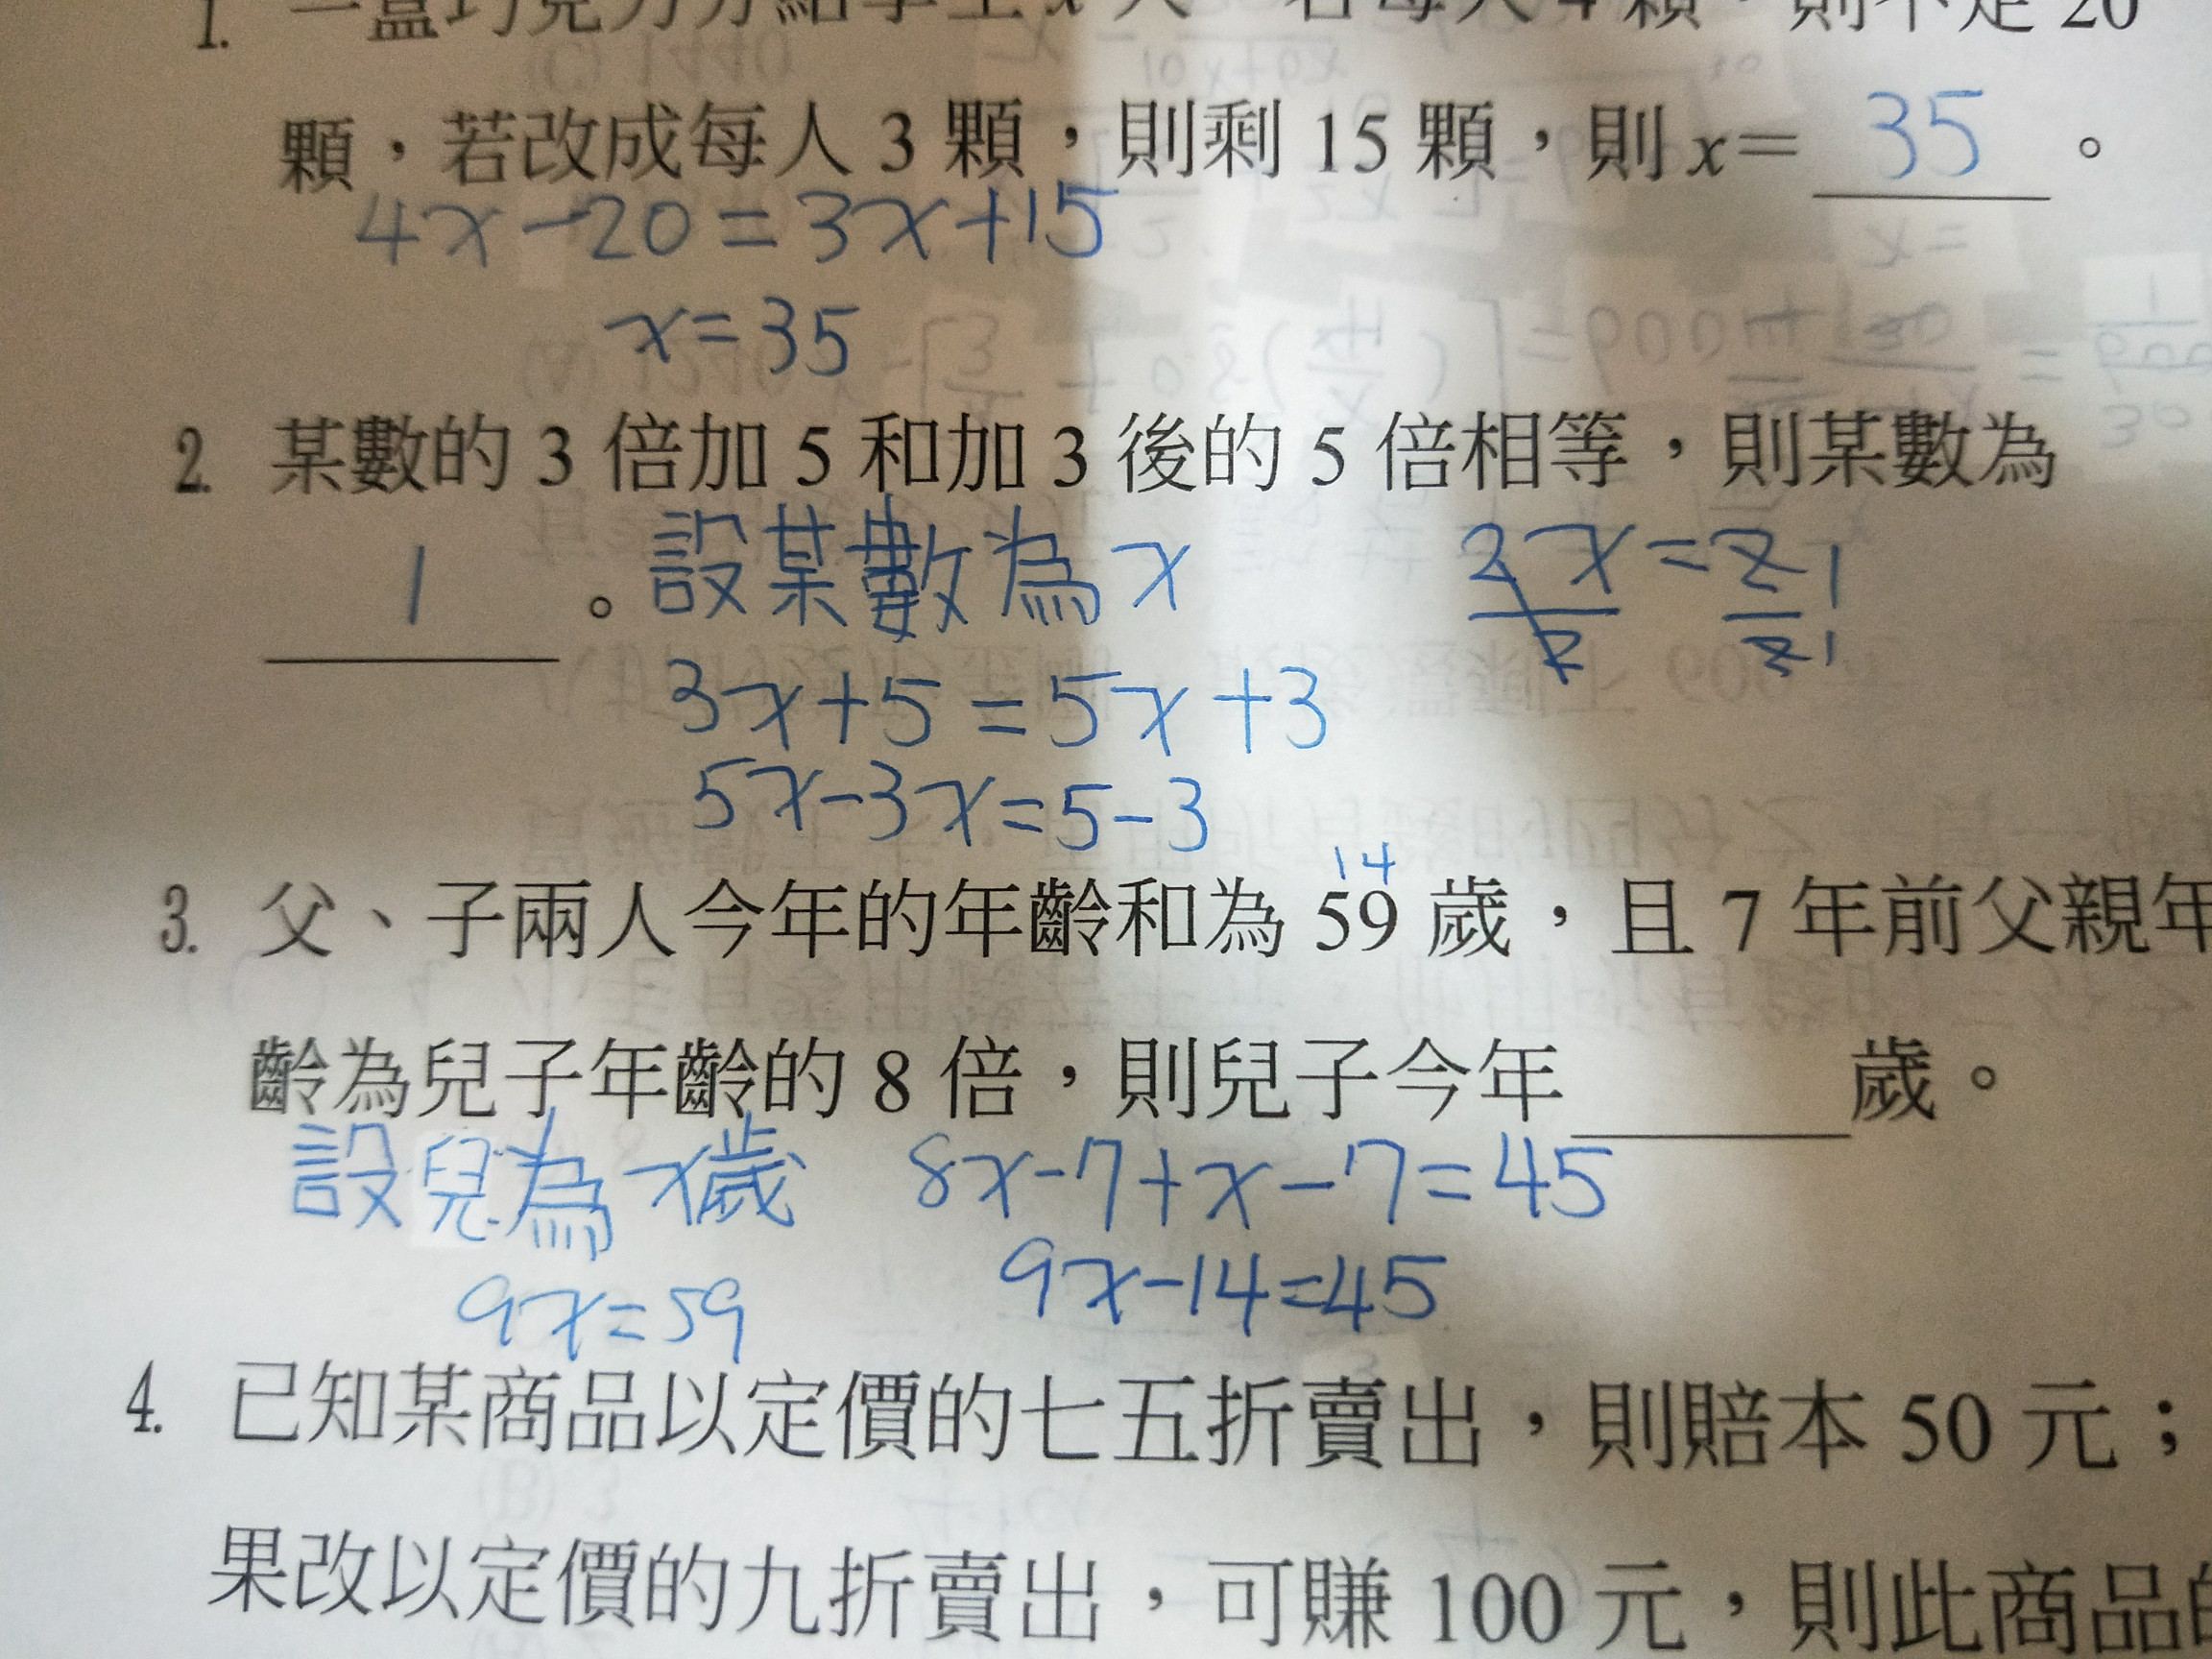 1. 一盒巧克力分給學生 x 人，若每人 4 顆，則不足 20
顆，若改成每人 3 顆，則剩 15 顆，則 x＝ 35 。
4x-20=3x+15
x=35
2. 某數的 3 倍加 5 和加 3 後的 5 倍相等，則某數為
1 。 設某數為 x
2x=2 1
2 2 1
3x+5=5x+3
5x-3x=5-3
14
3. 父、子兩人今年的年齡和為 59 歲，且 7 年前父親年
齡為兒子年齡的 8 倍，則兒子今年 歲。
設兒為 x歲 8x-7+x-7=45
9x-14=45
9x=59
4. 已知某商品以定價的七五折賣出，則賠本 50 元；
果改以定價的九折賣出，可賺 100 元，則此商品的